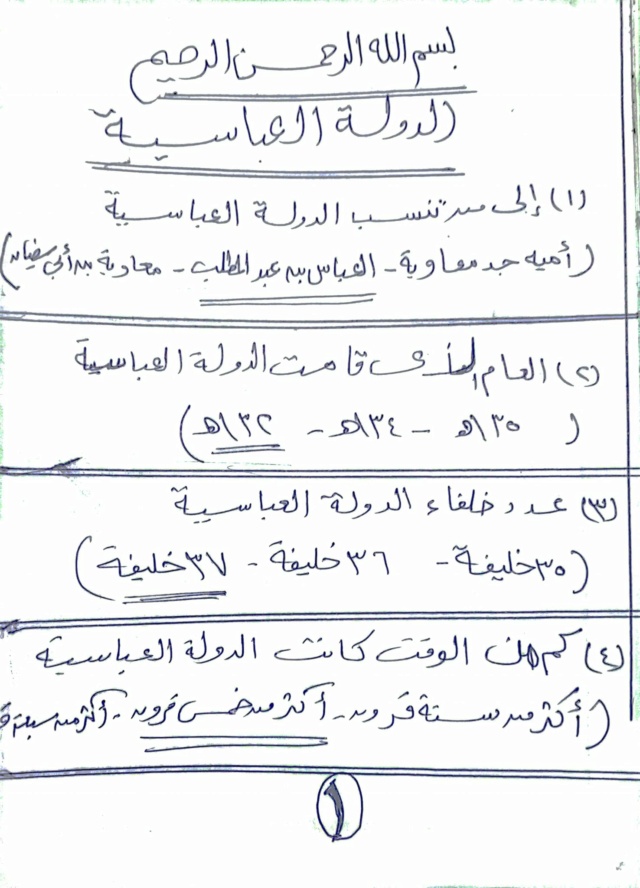 بسم الله الرحمن الرحيم
الدولة العباسية
(١) إلى من تنسب الدولة العباسية
(أميه جد معاوية - العباس بن عبد المطلب - معاوية بن أبي سفيان)
(٢) العام الذى قامت الدولة العباسية
(١٣٥هـ - ١٣٤هـ - ١٣٢هـ)
(٣) عدد خلفاء الدولة العباسية
(٣٥ خليفة - ٣٦ خليفة - ٣٧ خليفة)
(٤) كم من الوقت كانت الدولة العباسية
(أكثر من ستة قرون - أكثر من خمس قرون - أكثر من سبعة
١